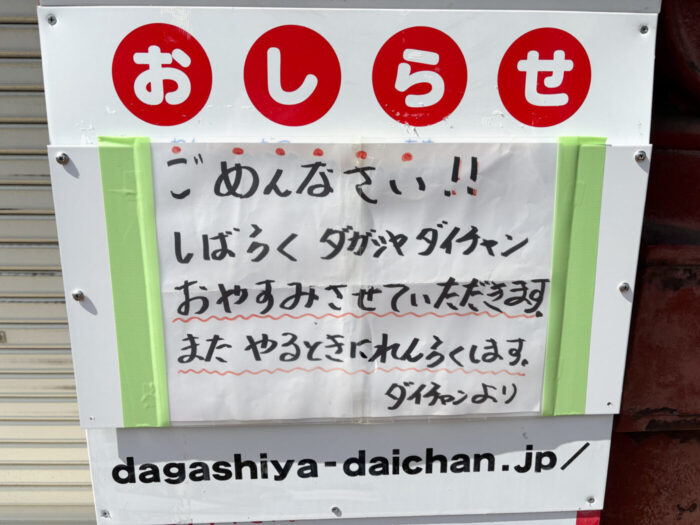 おしらせ
ごめんなさい!!
しばらく ダガシヤ ダイチャン
おやすみさせていただきます。
また やるときにれんらくします。
ダイチャンより
dagashiya-daichan.jp/